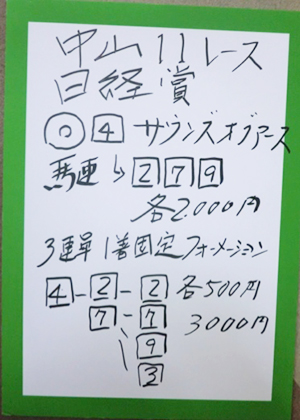 中山11レース
日経賞
◎4 サウンズオブアース
馬連↳2 7 9
各2,000円
3連単1着固定フォーメーション
4-2-2 各500円
7-7 3000円
9
3